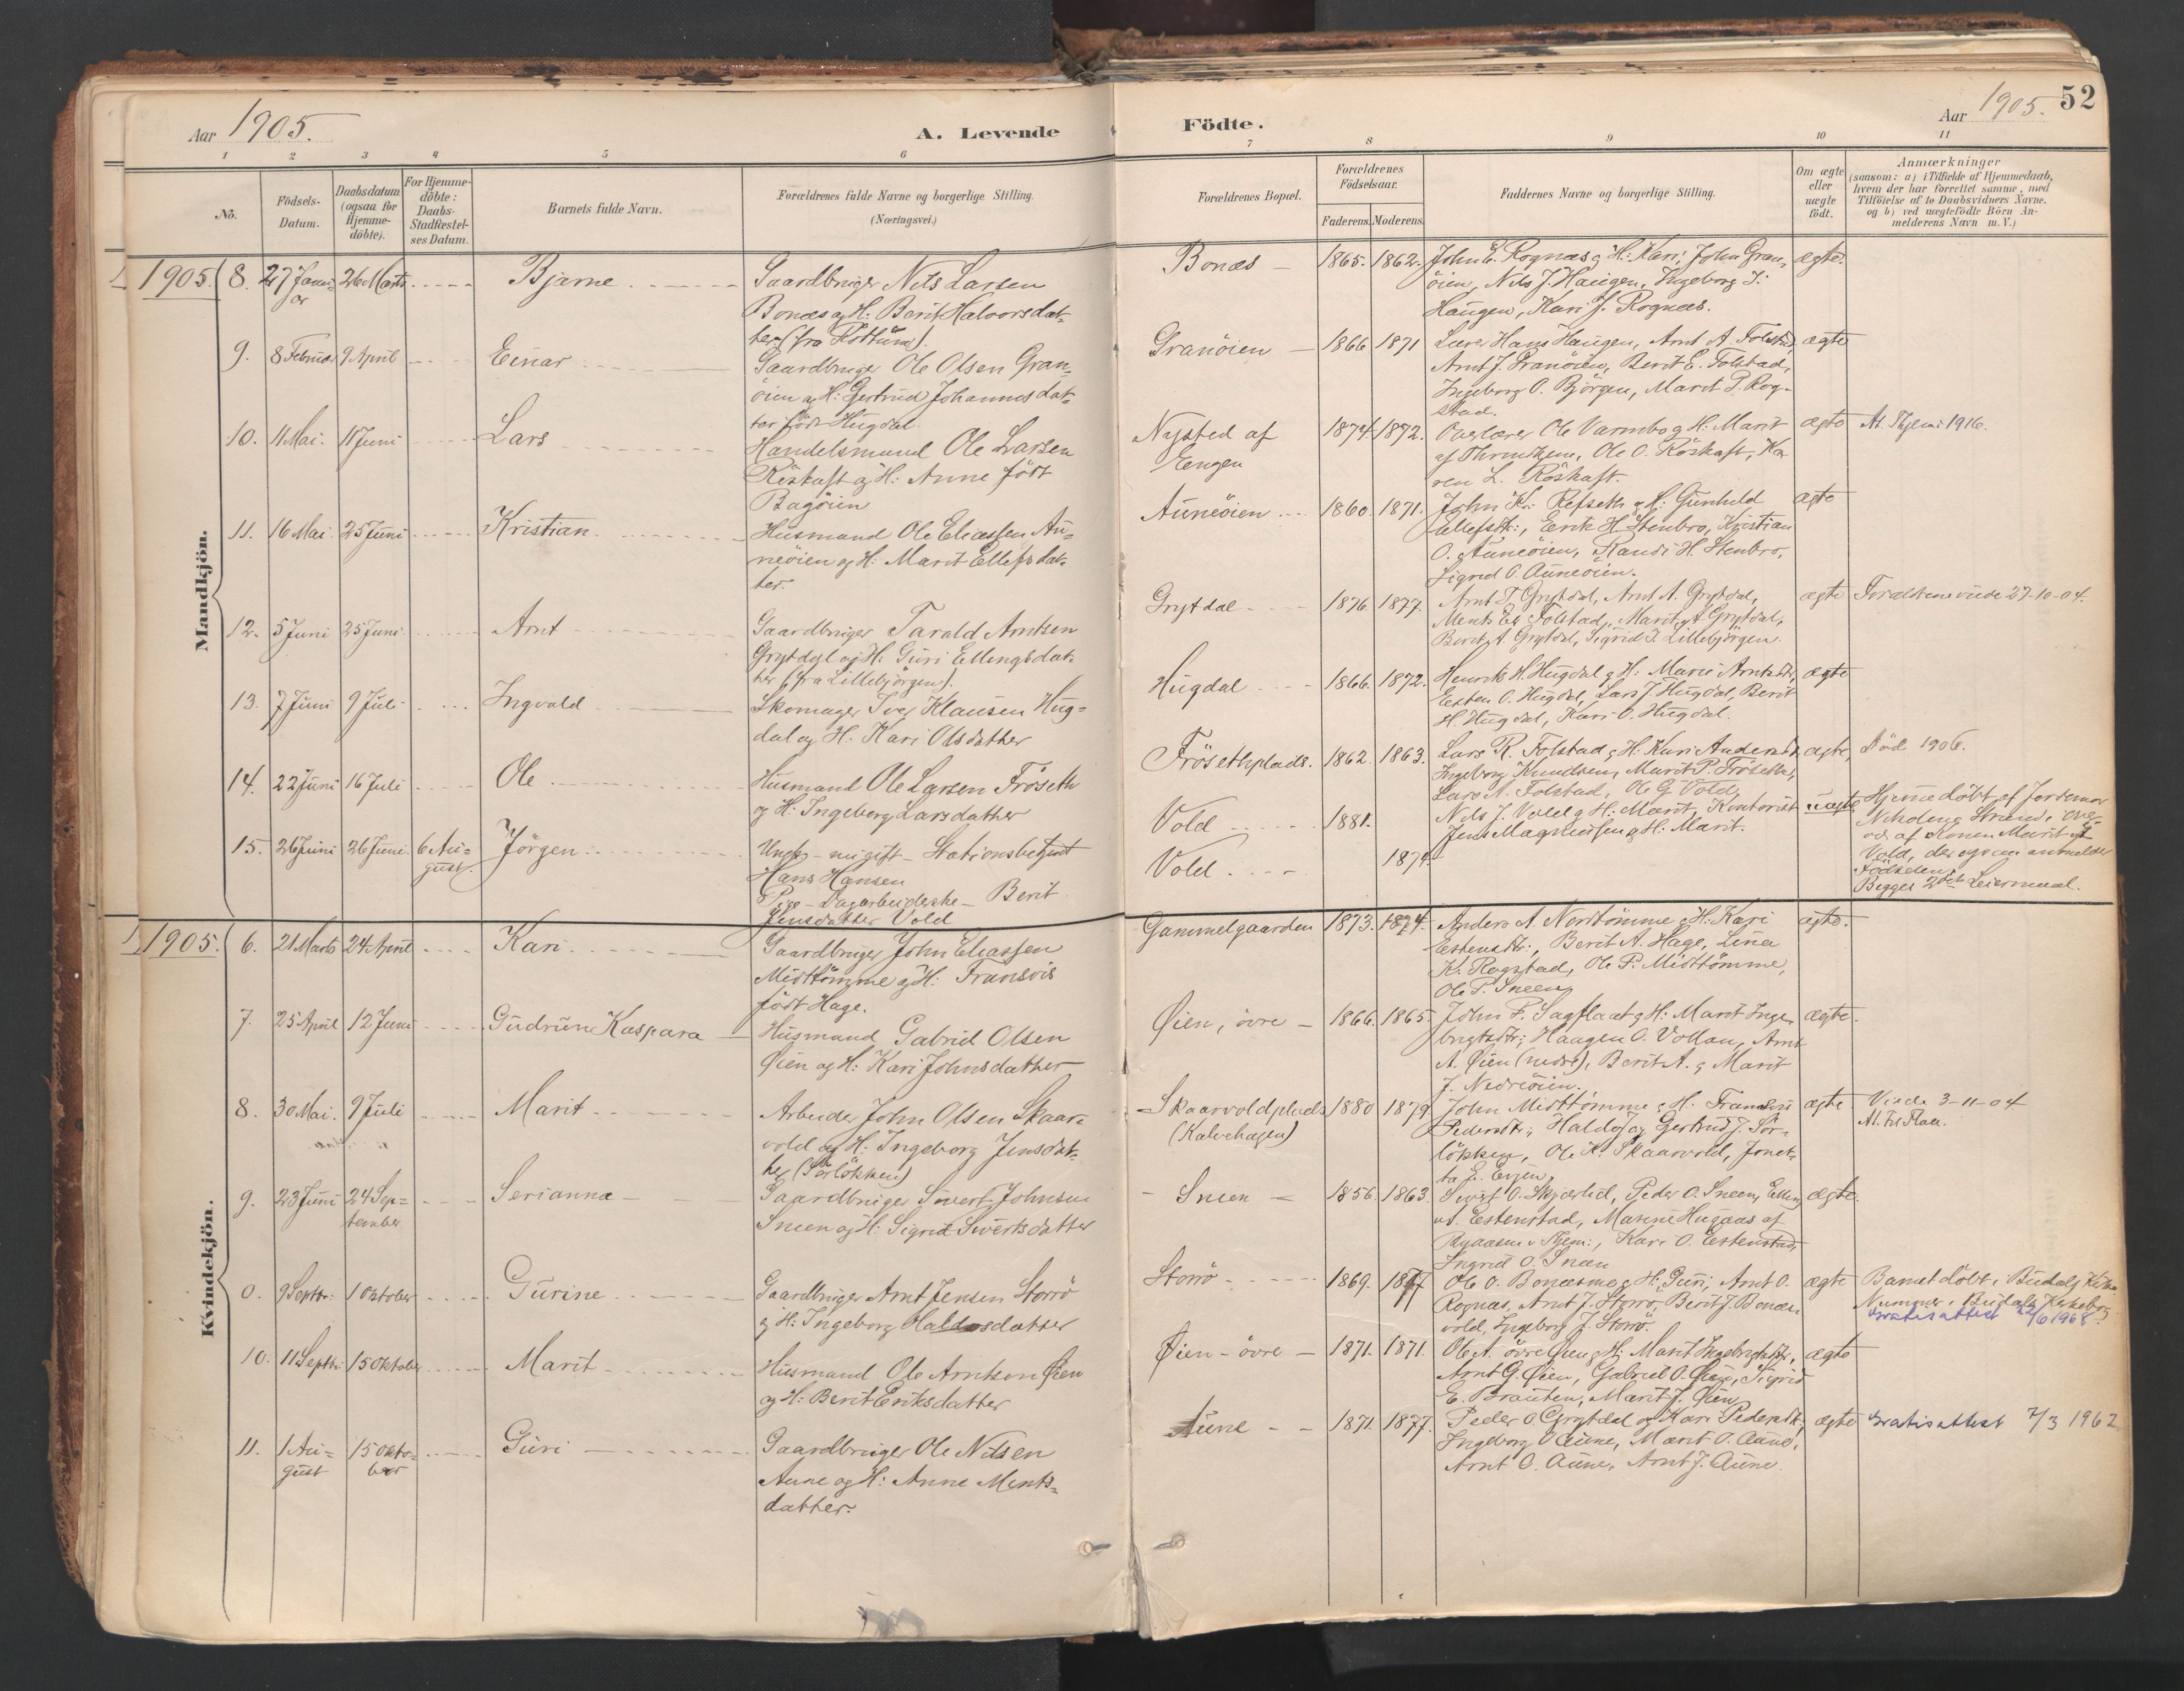 Aar 1905.
A. Levende
Födte.
Aar 1905. 52
1 2 3 4 5 6 7 8 9 10 11
No.
Födsels-
Datum.
Daabsdatum
(ogsaa for
Hjemme-
döbte).
For Hjemme-
döbte:
Daabs-
Stadfæstel-
ses Datum.
Barnets fulde Navn.
Forældrenes fulde Navne og borgerlige Stilling.
(Næringsvei.)
Forældrenes Bopæl.
Forældrenes
Födselsaar.
Faderens. Moderens.
Faddernes Navne og borgerlige Stilling.
Om ægte
eller
uægte
födt.
Anmærkninger
(saasom: a) i Tilfælde af Hjemmedaab,
hvem der har forrettet samme, med
Tilföielse af to Daabsvidners Navne,
og b) ved uægtefödte Börn An-
melderens Navn m.V.)
Mandkjön.
1905. 8. 27 Janu-
ar
26 Marts
Bjarne
Gaardbruger Nils Larsen
Bonæs og H: Berit Halvorsdat-
ter (fra Rottum).
Bonæs
1865. 1862.
John E. Rognæs & H: Kari; John Gran-
öien, Nils J. Haugen, Ingeborg J:
Haugen, Kari J. Rognæs.
ægte.
9. 8 Februar 9 April
Einar
Gaardbruger Ole Olsen Gran-
öien og H: Gjertrud Johannesdat-
ter födt Hugdal
Granöien
1866 1871
Lærer Hans Haugen, Arnt A. Folstad,
Arnt J. Granöien, Berit E. Folstad,
Ingeborg O. Björgen, Marit P. Rog-
stad.
ægte
10. 11 Mai. 11 Juni
Lars
Handelsmand Ole Larsen
Röskaft og H: Anne födt
Bagöien
Nysted af
Eengen
1874 1872.
Overlærer Ole Varmbo & H: Marit
af Throndhjem, Ole O. Röskaft, Ka-
ren L. Röskaft.
ægte
At. Thjem 1916.
11. 16 Mai. 25 Juni
Kristian.
Husmand Ole Eliassen Au-
neöien og H: Marit Ellefsdat-
ter.
Auneöien
1860. 1871.
John Kr. Refseth & H: Gunhild
Ellefsdtr:, Erik H. Stenbro, Kristian
O. Auneöien, Randi H. Stenbro,
Sigrid O. Auneöien.
ægte
12. 5 Juni 25 Juni
Arnt
Gaardbruger Tarald Arntsen
Grytdal og H: Guri Ellingsdat-
ter (fra Lillebjörgen).
Grytdal
1876. 1877.
Arnt T. Grytdal, Arnt A. Grytdal,
Ments E. Folstad, Marit A. Grytdal,
Berit A. Grytdal, Sigrid I. Lillebjörgen.
ægte
Forældrene viede 27-10-04.
13. 7 Juni 9 Juli
Ingvald
Skomager Iver Klausen Hug-
dal og H: Kari Olsdatter
Hugdal
1866. 1872.
Henrik H. Hugdal & H: Marie Arntsdtr,
Esten O. Hugdal, Lars J. Hugdal, Berit
H. Hugdal, Kari O. Hugdal.
ægte
14. 22 Juni 16 Juli
Ole
Husmand Ole Larsen Fröseth
og H: Ingeborg Larsdatter
Frösethplads.
1862. 1863.
Lars R. Folstad & H: Kari Andersdtr,
Ingeborg Knudsen, Marit P. Fröseth,
Lars A. Folstad, Ole G. Vold
ægte,
Död 1906.
15. 26 Juni 26 Juni. 6 Au-
gust.
Jörgen
Ungk. ugift Stationsbetjent
Hans Hansen
Pige Dagarbeiderske Berit
Jensdatter Vold
Vold
Vold
1881.
1874.
Nils J. Vold & H: Marit, Kontorist
Jens Magnussen & H: Marit.
uægte
Hjemmedöbt af Jordemor
Nikoline Strand, over-
vær. af Konen Marit
Vold, der ogsaa anmelder
Födselen.
Begges 2det Leiermaal.
Kvindekjön.
1905. 6. 21 Marts 24 April
Kari
Gaardbruger John Eliassen
Midttömme og H: Fransvis
födt Hage.
Gammelgaarden
1873. 1874.
Anders A. Nordtömme & H: Kari
Estensdtr:, Berit A. Hage, Lina
K. Rogstad, Ole P. Midttömme,
Ole P. Sneen
ægte.
7. 25 April 12 Juni
Gudrune Kaspara
Husmand Gabriel Olsen
Øien og H: Kari Johnsdatter
Øien, övre
1866. 1865.
John P. Sagflaat & H: Marit Inge-
brigtsdtr; Haagen O. Vollan, Arnt
A. Øien (nedre), Berit A. & Marit
J. Nedreöien.
ægte.
8. 30 Mai. 9 Juli
Marit
Arbeider John Olsen Skaar-
vold og H: Ingeborg Jensdat-
ter (Sörlökken)
Skaarvoldplads
(Kalvehagen)
1880 1879
John Midttömme & H: Fransvis
Pedersdtr:, Haldo J. og Gertrud J. Sör-
lökken, Ole K. Skaarvold, Jonet-
ta E. Evjen.
ægte
Viede 3-11-04
At. til Flaa.
9. 23 Juni 24 Sep-
tember
Serianna
Gaardbruger Sivert Johnsen
Sneen og H: Sigrid Sivertsdatter
Sneen
1856. 1863.
Sivert O. Skjærlid, Peder O. Sneen, Elling
A. Estenstad, Marine Hugaas af
Rugaasen v. Thjem:, Kari O. Estenstad,
Ingrid O. Sneen
ægte.
0. 9 Septbr: 1 Oktober
Gurine
Gaardbruger Arnt Jensen Storrö
& H: Ingeborg Haldosdatter
Storrö
1869. 1877
Ole O. Bonæsmo & H: Guri, Arnt O.
Rognæs, Arnt J. Storrö, Berit J. Bonæs-
vold, Ingeborg J. Storrö.
ægte
Barnet döbt i Budals Kirke
Nummer i Budals Kirkebog
Gratisattest 22/6 1968.
10. 11 Septbr: 15 Oktober
Marit
Husmand Ole Arntsen Øien
og H: Berit Eriksdatter
Øien övre
1871. 1871.
Ole A. övre Øien & H: Marit Ingebrigtsdtr,
Arnt G. Øien, Gabriel O. Øien, Sigrid
E. Brauten, Marit J. Øien
ægte
11. 1 Au-
gust
15 Okto-
ber
Guri
Gaardbruger Ole Nilsen
Aune og H: Anne Ments-
datter.
Aune
1871. 1877.
Peder O. Grytdal og Kari Pedersdtr,
Ingeborg O. Aune, Marit O. Aune,
Arnt O. Aune, Arnt J. Aune.
ægte
Gratisattest 7/3 1962